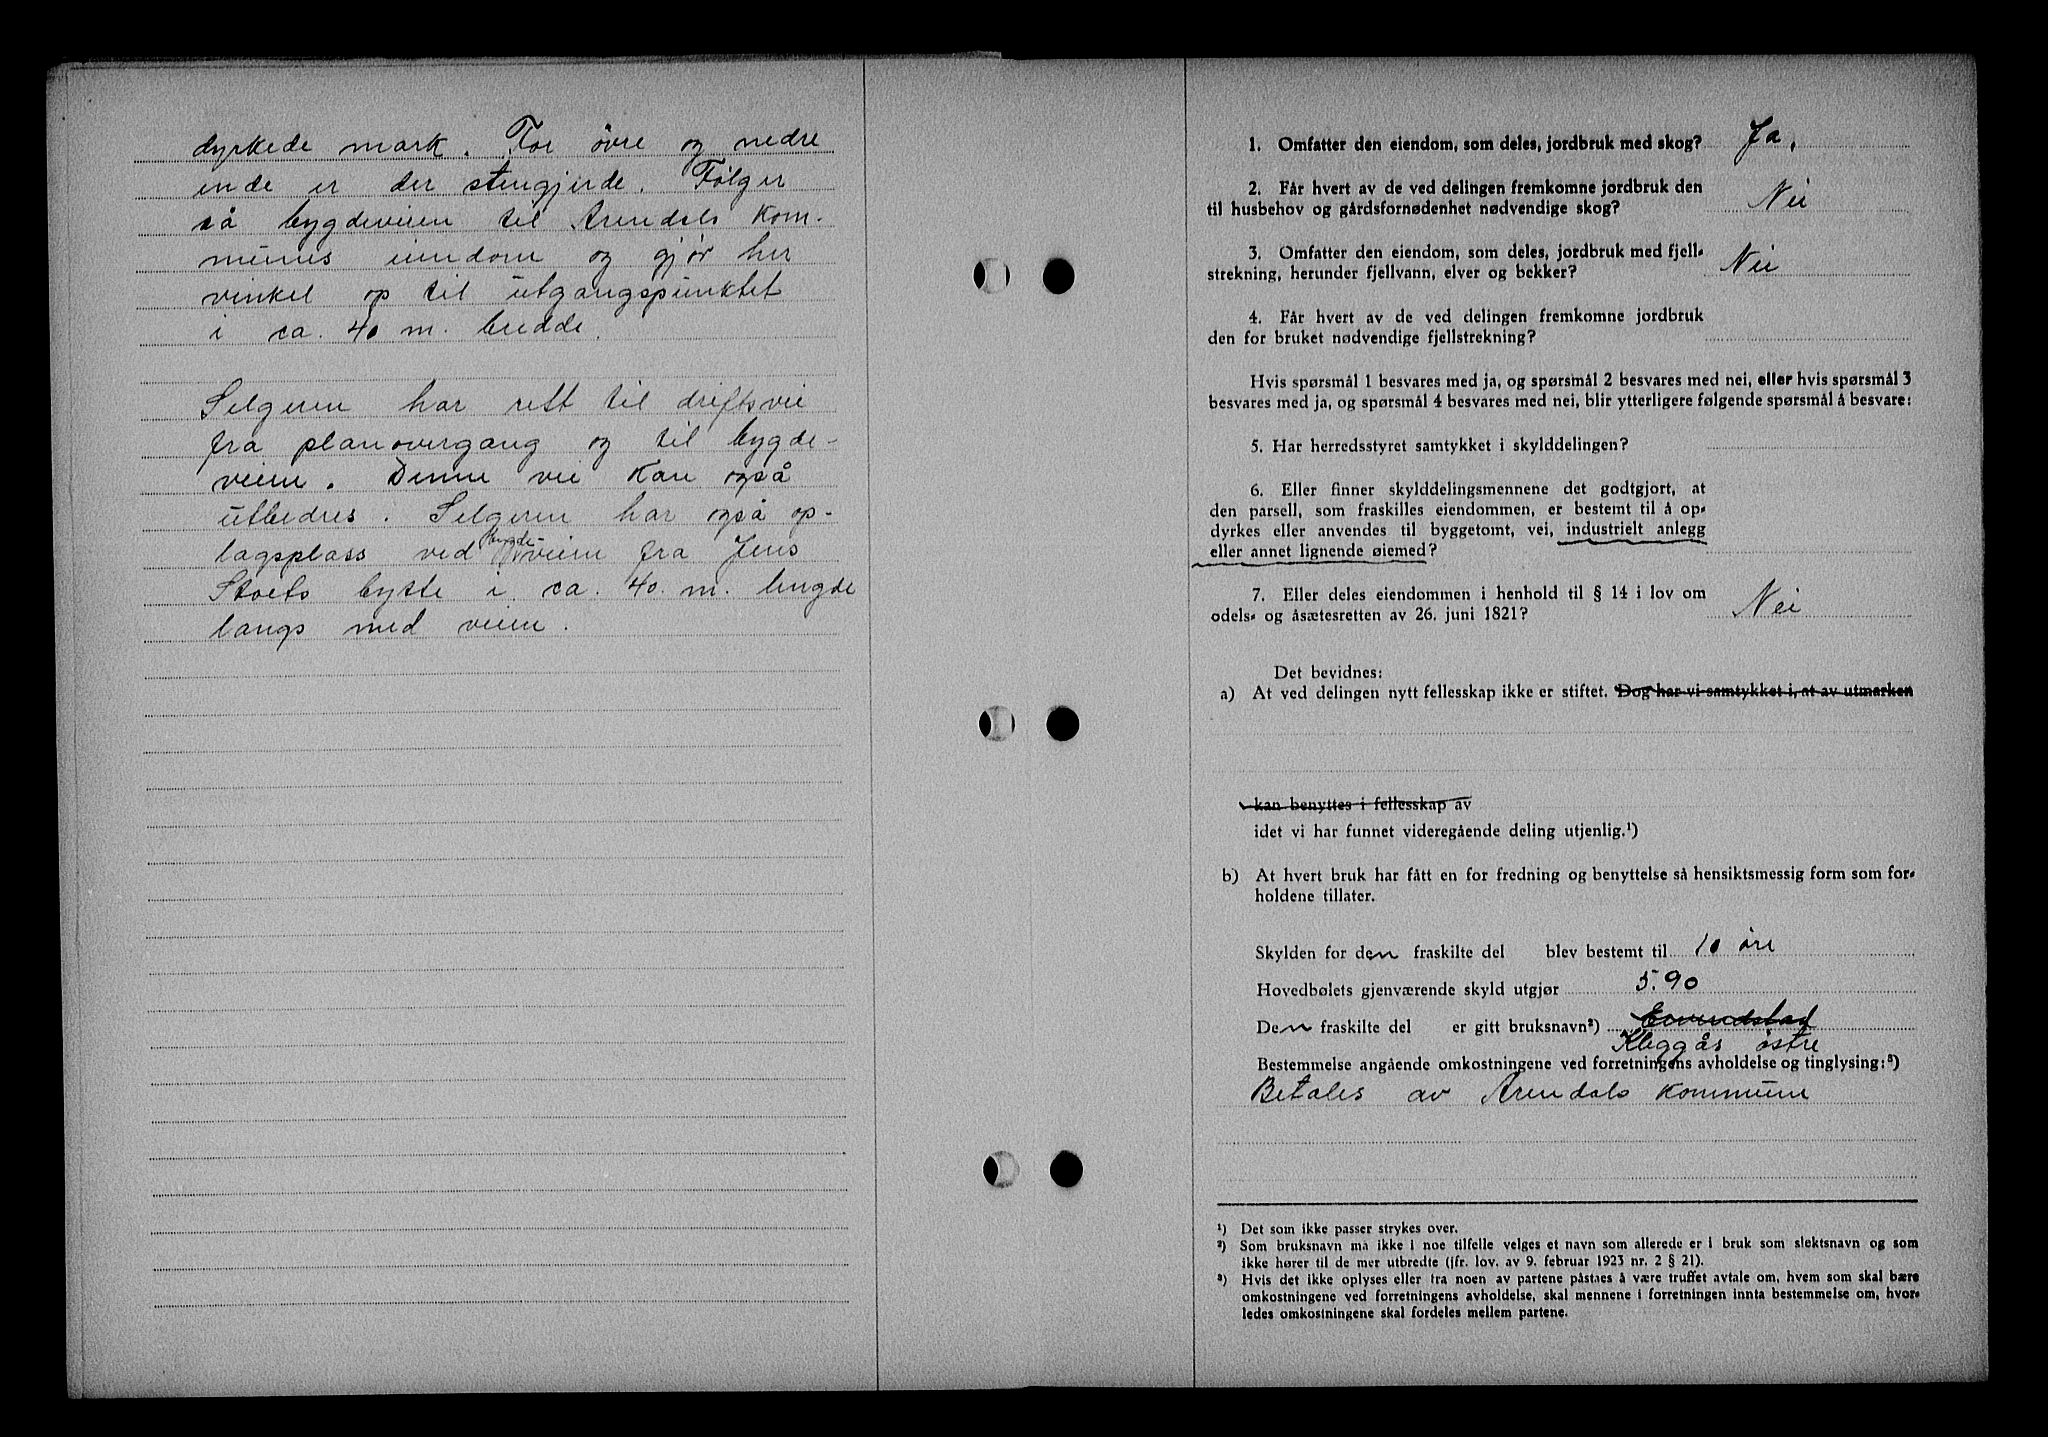 dyrkede mark. For øvre og nedre
ende er der stengjerde. Følger
så bygdeveien til Arendals kom-
munes eiendom og gjør her
vinkel op til utgangspunktet
i ca. 40 m. bredde.
Selgeren har rett til driftsvei
fra planovergang og til bygde-
veien. Denne vei kan også
utbedres. Selgeren har også op-
lagsplass ved bygdeveien fra Jens
Stoets bytte i ca. 40. m. lengde
langs med veien.
1. Omfatter den eiendom, som deles, jordbruk med skog? Ja.
2. Får hvert av de ved delingen fremkomne jordbruk den
til husbehov og gårdsfornødenhet nødvendige skog? Nei
3. Omfatter den eiendom, som deles, jordbruk med fjell-
strekning, herunder fjellvann, elver og bekker? Nei
4. Får hvert av de ved delingen fremkomne jordbruk
den for bruket nødvendige fjellstrekning?
Hvis spørsmål 1 besvares med ja, og spørsmål 2 besvares med nei, eller hvis spørsmål 3
besvares med ja, og spørsmål 4 besvares med nei, blir ytterligere følgende spørsmål å besvare:
5. Har herredsstyret samtykket i skylddelingen?
6. Eller finner skylddelingsmennene det godtgjort, at
den parsell, som fraskilles eiendommen, er bestemt til å op-
dyrkes eller anvendes til byggetomt, vei, industrielt anlegg
eller annet lignende øiemed?
7. Eller deles eiendommen i henhold til § 14 i lov om
odels- og åsætesretten av 26. juni 1821? Nei
Det bevidnes:
a) At ved delingen nytt fellesskap ikke er stiftet. Dog har vi samtykket i, at av utmarken
kan benyttes i fellesskap av
idet vi har funnet videregående deling utjenlig.¹)
b) At hvert bruk har fått en for fredning og benyttelse så hensiktsmessig form som for-
holdene tillater.
Skylden for den fraskilte del blev bestemt til 10 øre
Hovedbølets gjenværende skyld utgjør 5.90
Den fraskilte del er gitt bruksnavn²)
Kleggås østre
Bestemmelse angående omkostningene ved forretningens avholdelse og tinglysing:³)
Betales av Arendals kommune
¹) Det som ikke passer strykes over.
²) Som bruksnavn må ikke i noe tilfelle velges et navn som allerede er i bruk som slektsnavn og som
ikke hører til de mer utbredte (jfr. lov. av 9. februar 1923 nr. 2 § 21).
³) Hvis det ikke oplyses eller fra noen av partene påstaes å være truffet avtale om, hvem som skal bære
omkostningene ved forretningens avholdelse, skal mennene i forretningen innta bestemmelse om, hvor-
ledes omkostningene skal fordeles mellem partene.